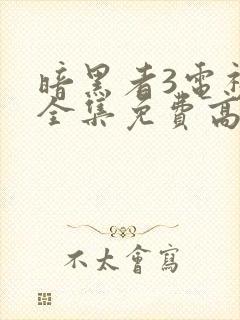 暗黑者3電視
全集免費高
不太會寫